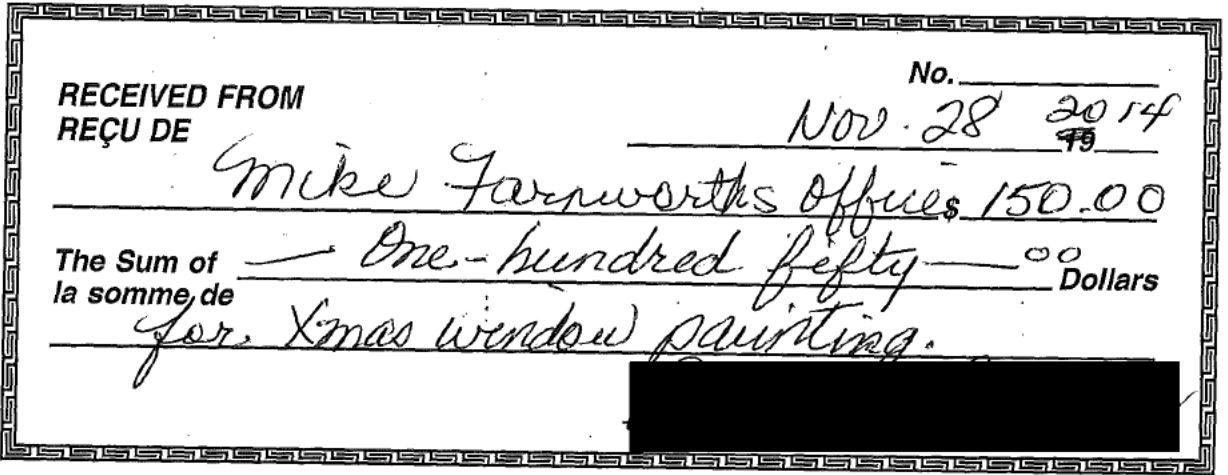 No.
RECEIVED FROM
REÇU DE
Nov. 28 2014
19
Mike Farnworths Office $ 150.00
The Sum of — One-hundred fifty — 00 Dollars
la somme de
for Xmas window painting.